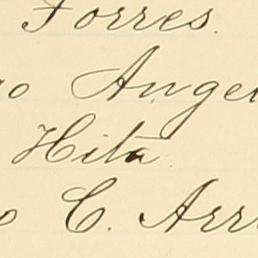 Torres.
go Angel
Hita.
o C. Arr